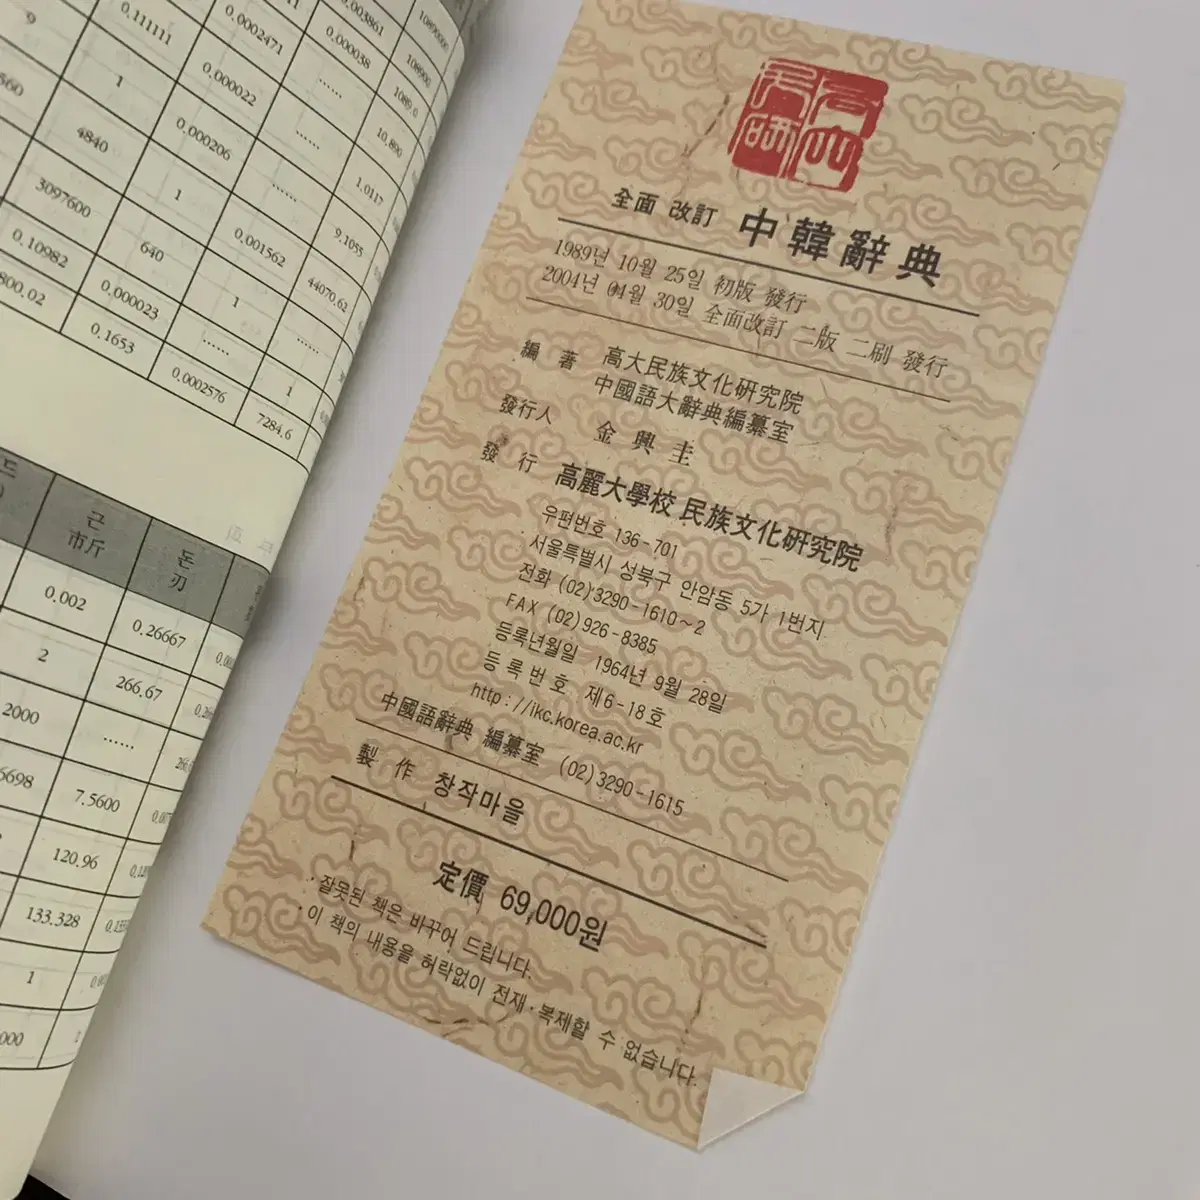 9
0.111111
0.0002471
0.003861
10890000
560
1
0.000022
0.000038
108900
4840
0.000206
......
1089.0
3097600
1
......
10.890
0.10982
640
0.001562
......
1.0117
800.02
0.000023
1
9.1055
0.1653
......
......
44070.62
0.0002576
1
7284.6
근
市斤
돈
刃
0.002
0.26667
2
266.67
2000
......
5698
7.5600
120.96
133.328
1
000
1
全面 改訂 中韓辭典
1989년 10월 25일 初版 發行
2004년 04월 30일 全面改訂 二版 二刷 發行
編 著 高大民族文化硏究院
中國語大辭典編纂室
發行人 金 興 圭
發 行 高麗大學校 民族文化硏究院
우편번호 136-701
서울특별시 성북구 안암동 5가 1번지
전화 (02)3290-1610~2
FAX (02)926-8385
등록년월일 1964년 9월 28일
등록번호 제6-18호
http://ikc.korea.ac.kr
中國語辭典 編纂室 (02)3290-1615
製 作 창작마을
定價 69,000원
·잘못된 책은 바꾸어 드립니다.
·이 책의 내용을 허락없이 전재·복제할 수 없습니다.